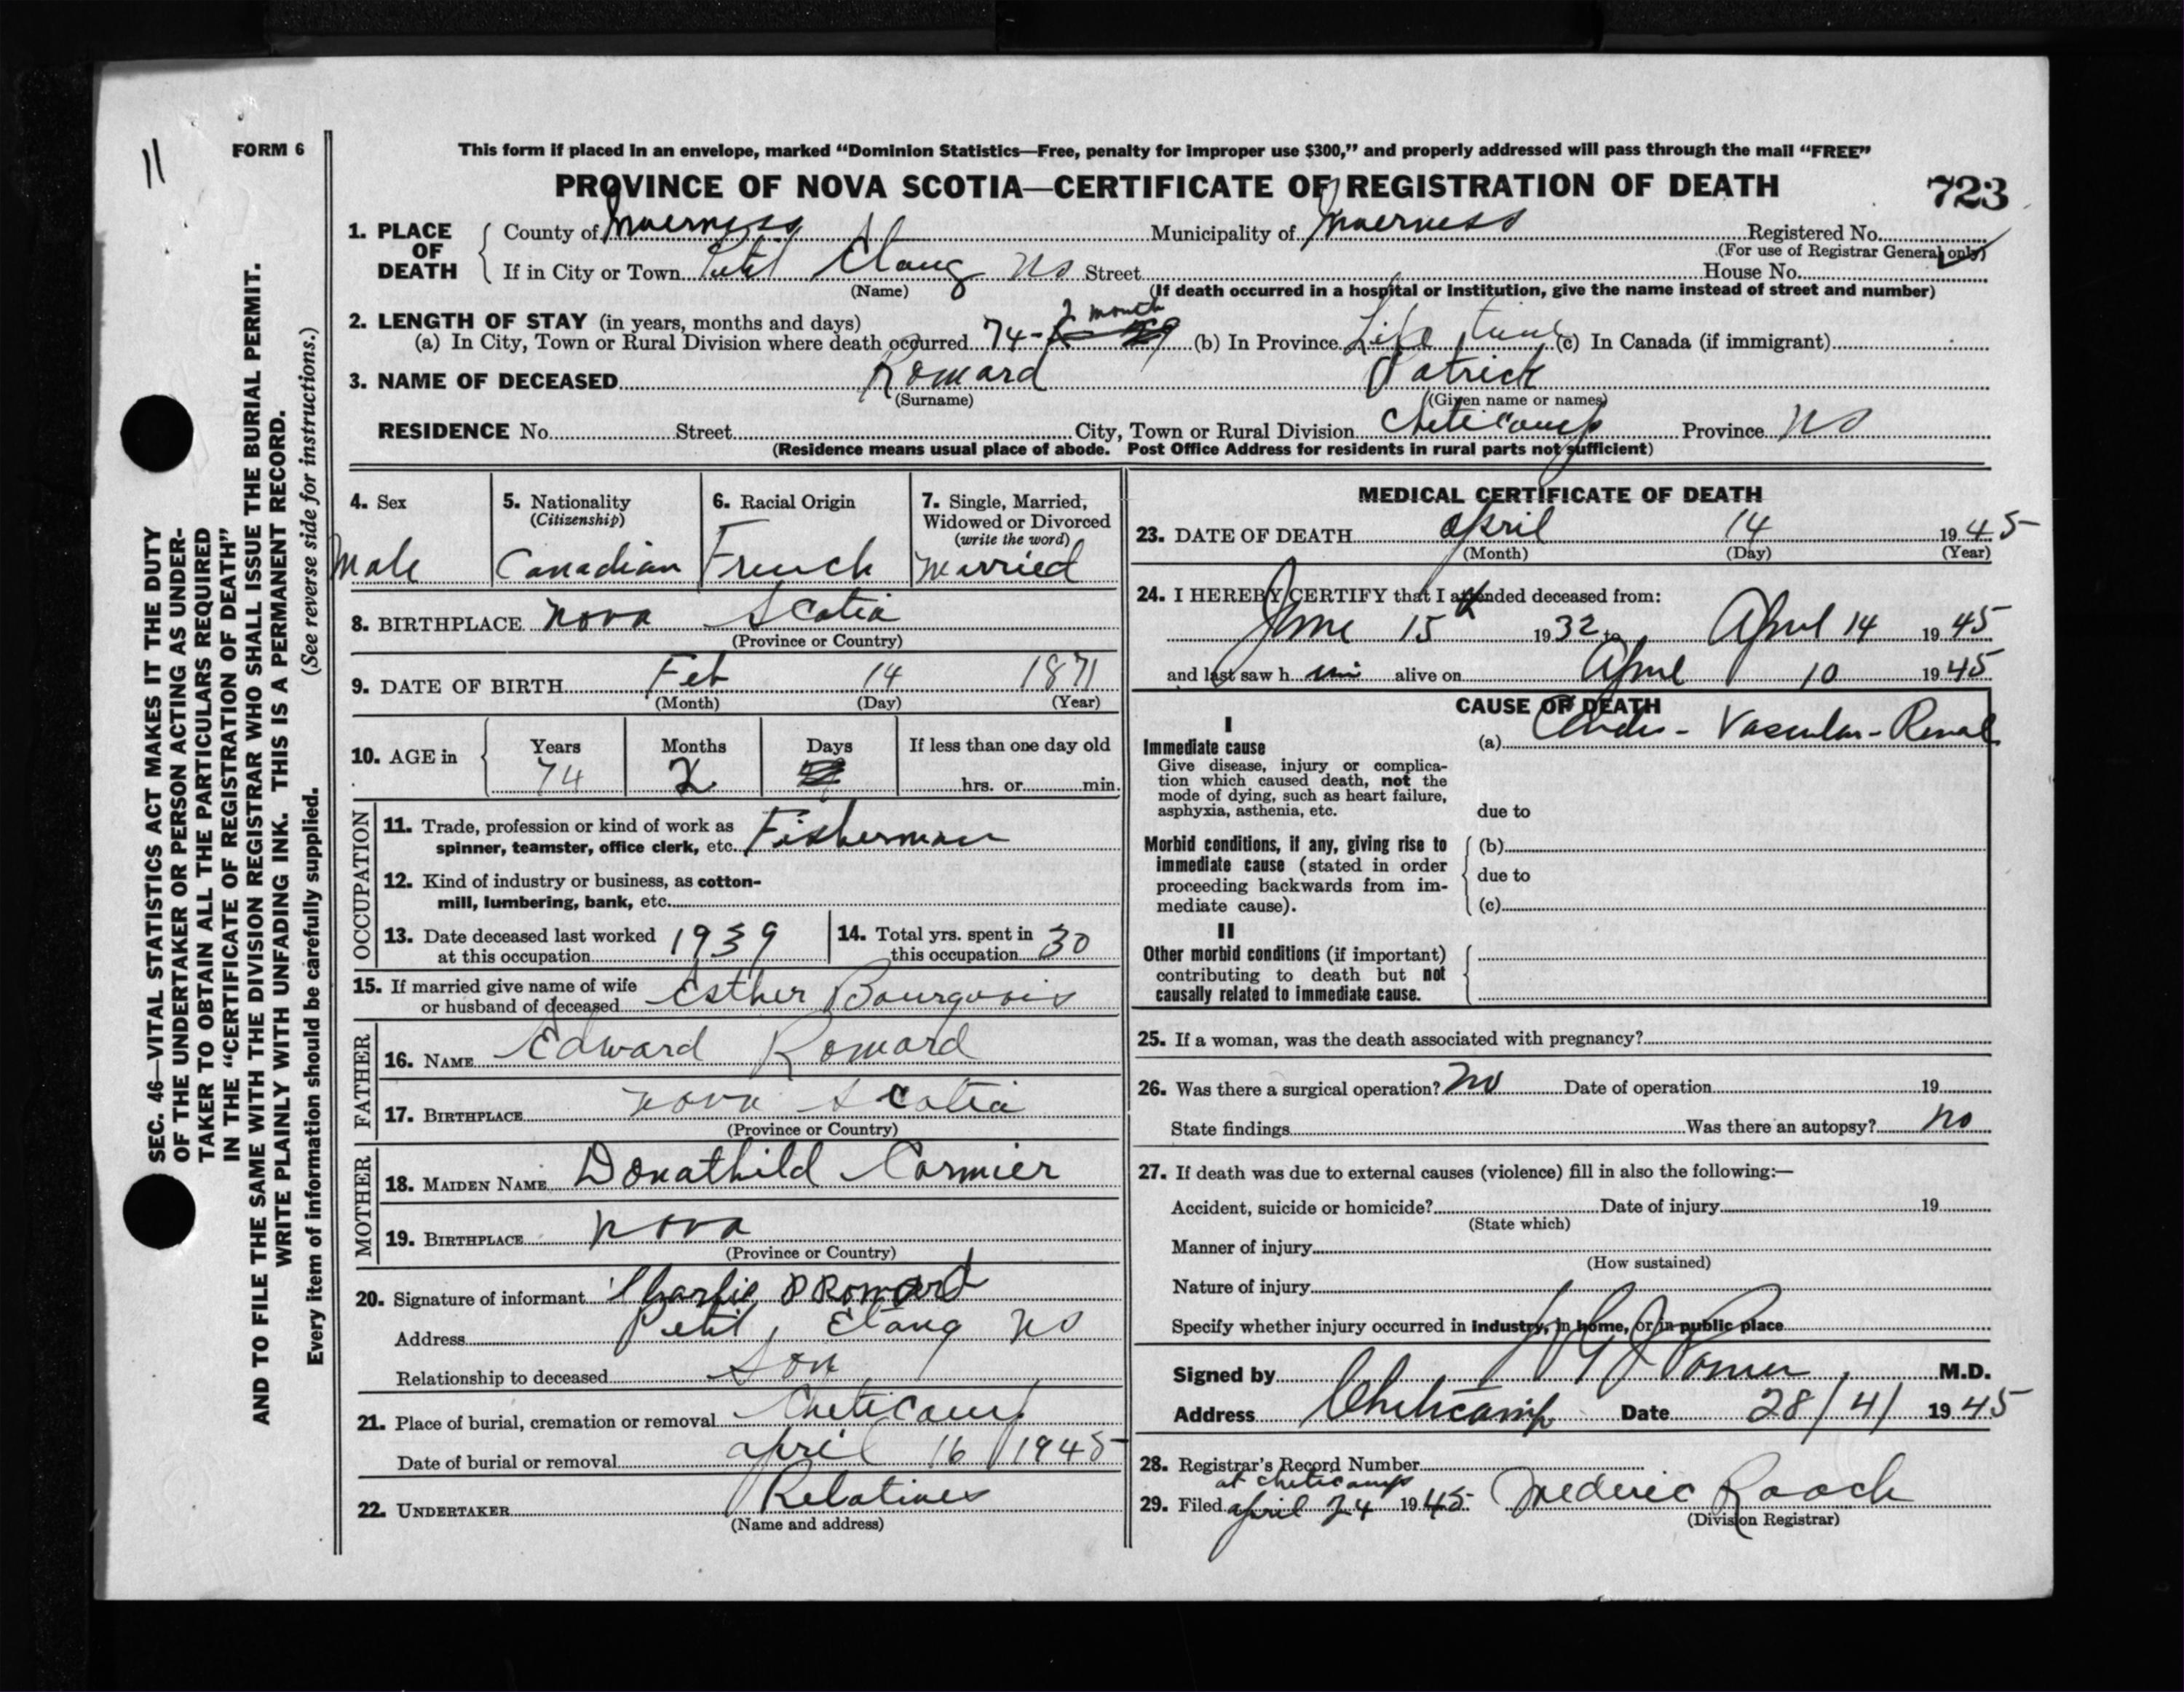 11
FORM 6
SEC. 46—VITAL STATISTICS ACT MAKES IT THE DUTY
OF THE UNDERTAKER OR PERSON ACTING AS UNDER-
TAKER TO OBTAIN ALL THE PARTICULARS REQUIRED
IN THE "CERTIFICATE OF REGISTRATION OF DEATH"
AND TO FILE THE SAME WITH THE DIVISION REGISTRAR WHO SHALL ISSUE THE BURIAL PERMIT.
WRITE PLAINLY WITH UNFADING INK. THIS IS A PERMANENT RECORD.
Every item of information should be carefully supplied. (See reverse side for instructions.)
This form if placed in an envelope, marked "Dominion Statistics—Free, penalty for improper use $300," and properly addressed will pass through the mail "FREE"
PROVINCE OF NOVA SCOTIA—CERTIFICATE OF REGISTRATION OF DEATH 723
1. PLACE OF DEATH County of Inverness Municipality of Inverness Registered No.
(For use of Registrar General only)
If in City or Town Petit Etang NS Street House No.
(Name) (If death occurred in a hospital or institution, give the name instead of street and number)
2. LENGTH OF STAY (in years, months and days) 2 month
(a) In City, Town or Rural Division where death occurred 74- (b) In Province Life time (c) In Canada (if immigrant)
3. NAME OF DECEASED Romard Patrick
(Surname) (Given name or names)
RESIDENCE No. Street City, Town or Rural Division Cheticamp Province NS
(Residence means usual place of abode. Post Office Address for residents in rural parts not sufficient)
4. Sex Male
5. Nationality (Citizenship) Canadian
6. Racial Origin French
7. Single, Married, Widowed or Divorced (write the word) Married
8. BIRTHPLACE Nova Scotia
(Province or Country)
9. DATE OF BIRTH Feb 14 1871
(Month) (Day) (Year)
10. AGE in Years Months Days If less than one day old
74 2 hrs. or min.
OCCUPATION
11. Trade, profession or kind of work as spinner, teamster, office clerk, etc. Fisherman
12. Kind of industry or business, as cotton-
mill, lumbering, bank, etc.
13. Date deceased last worked at this occupation 1939
14. Total yrs. spent in this occupation 30
15. If married give name of wife or husband of deceased Esther Bourgois
FATHER
16. NAME Edward Romard
17. BIRTHPLACE Nova Scotia
(Province or Country)
MOTHER
18. MAIDEN NAME Donathild Cormier
19. BIRTHPLACE Nova
(Province or Country)
20. Signature of informant Charlie P Romard
Address Petit, Etang NS
Relationship to deceased Son
21. Place of burial, cremation or removal Cheticamp
Date of burial or removal april 16 1945
22. UNDERTAKER Relatives
(Name and address)
MEDICAL CERTIFICATE OF DEATH
23. DATE OF DEATH april 14 1945
(Month) (Day) (Year)
24. I HEREBY CERTIFY that I attended deceased from:
June 15th 1932 to April 14 1945
and last saw h im alive on April 10 1945
CAUSE OF DEATH
I
Immediate cause (a) Cardio-Vascular-Renal
Give disease, injury or complica-
tion which caused death, not the
mode of dying, such as heart failure,
asphyxia, asthenia, etc. due to
Morbid conditions, if any, giving rise to (b)
immediate cause (stated in order
proceeding backwards from im- due to
mediate cause). (c)
II
Other morbid conditions (if important)
contributing to death but not
causally related to immediate cause.
25. If a woman, was the death associated with pregnancy?
26. Was there a surgical operation? No Date of operation 19
State findings Was there an autopsy? No
27. If death was due to external causes (violence) fill in also the following:—
Accident, suicide or homicide? Date of injury 19
(State which)
Manner of injury
(How sustained)
Nature of injury
Specify whether injury occurred in industry, in home, or in public place
Signed by M.D.
Address Cheticamp Date 28/4/ 1945
28. Registrar's Record Number
at Cheticamp
29. Filed april 24 1945 Mederic Roach
(Division Registrar)